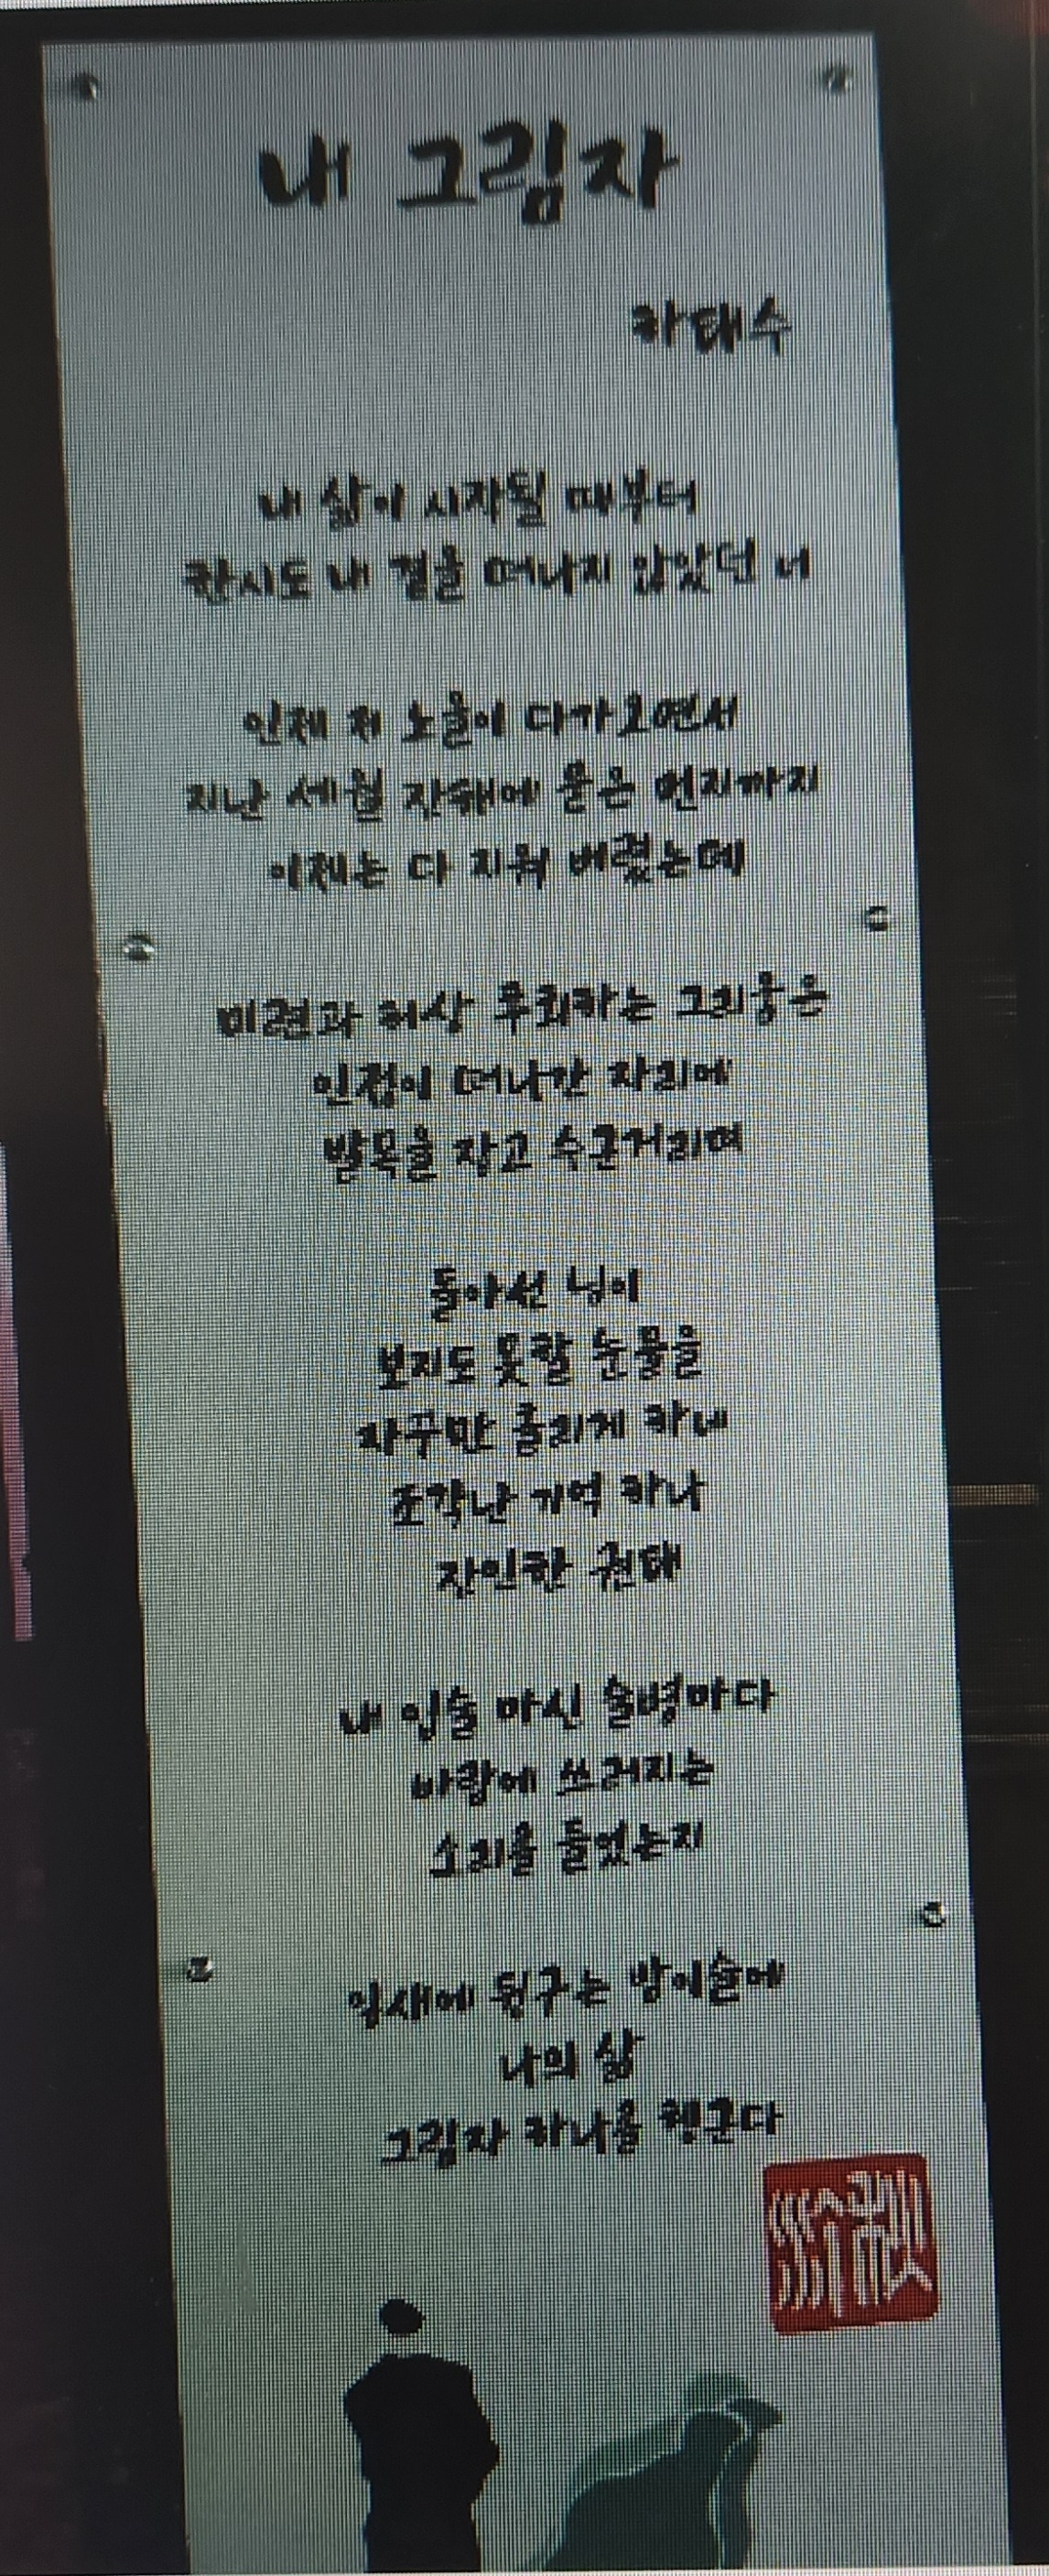 내 그림자
하태수
내 삶이 시작될 때부터
한시도 내 곁을 떠나지 않았던 너
인제 저 노을이 다가오면서
지난 세월 잔해에 묻은 먼지까지
이제는 다 지워 버렸는데
미련과 허상 후회하는 그리움은
인접이 떠나간 자리에
발목을 잡고 수근거리며
돌아선 님이
보지도 못할 눈물을
자꾸만 흘리게 하네
조각난 기억 하나
잔인한 권태
내 입술 마신 술병마다
바람에 쓰러지는
소리를 들었는지
잎새에 뒹구는 밤이슬에
나의 삶
그림자 하나를 헹군다